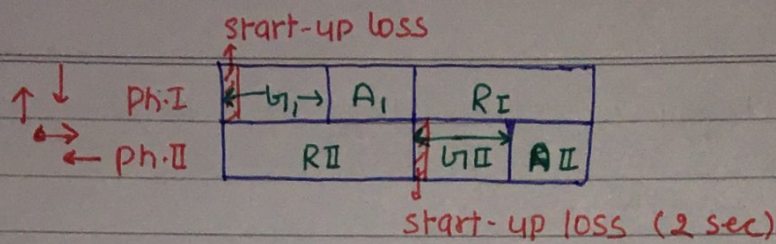 start-up loss
Ph.I G1 A1 RI
Ph.II RII GII AII
start-up loss (2 sec)